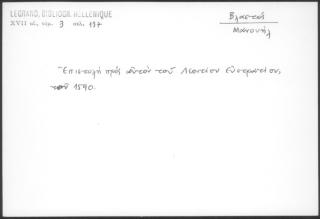 LEGRAND, BIBLIOGR. HELLENIQUE
XVII αἰ. τόμ. 3 σελ. 137
Βλαστός
Μανουήλ
Ἐπιστολὴ πρὸς αὐτὸν τοῦ Λεοντίου Εὐστρατίου,
τοῦ 1590.